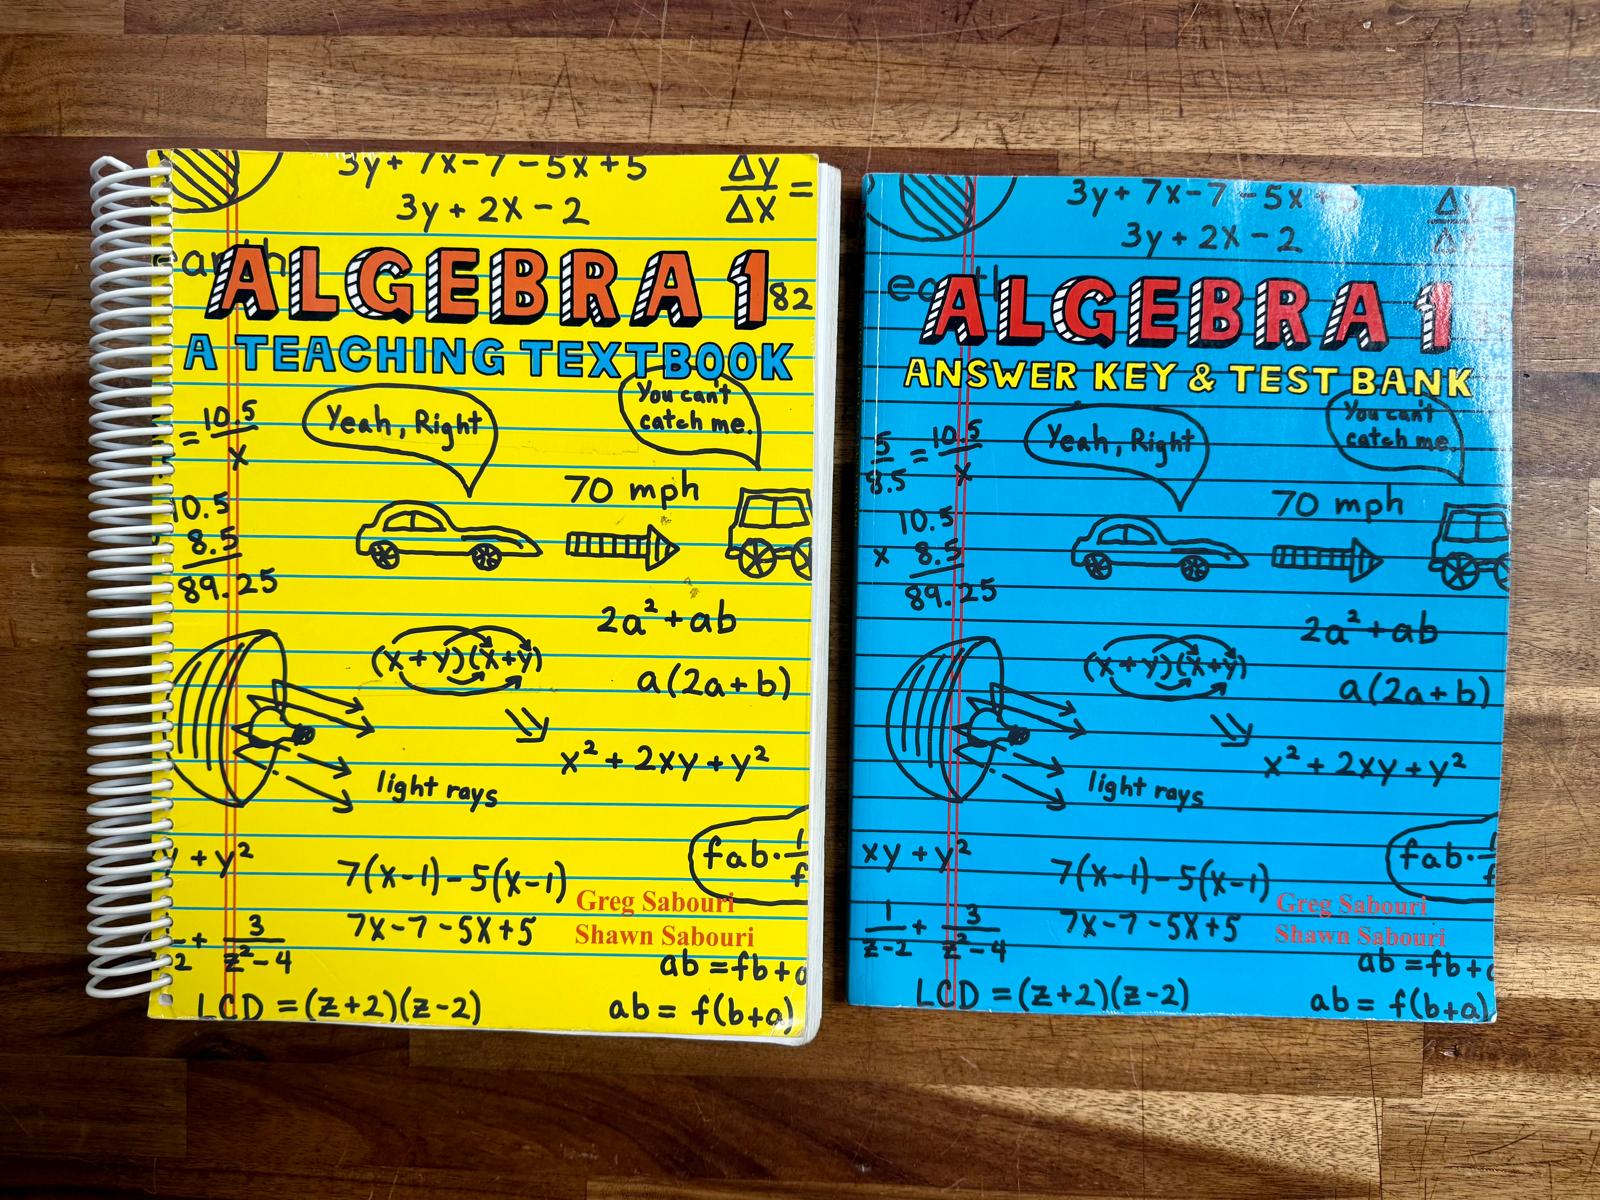 3y + 7x - 7 - 5x + 5
3y + 2x - 2
Δy
Δx
=
earth
ALGEBRA 1
82
A TEACHING TEXTBOOK
Yeah, Right
You can't
catch me.
= 10.5
x
70 mph
10.5
8.5
89.25
2a² + ab
(x + y)(x + y)
a(2a + b)
x² + 2xy + y²
light rays
y + y²
fab · 1
f
7(x - 1) - 5(x - 1)
Greg Sabouri
7x - 7 - 5x + 5
Shawn Sabouri
+ 3
2 z² - 4
ab = fb +
LCD = (z + 2)(z - 2)
ab = f(b + a)
3y + 7x - 7 - 5x + 5
3y + 2x - 2
Δy
Δx
earth
ALGEBRA 1
ANSWER KEY & TEST BANK
Yeah, Right
You can't
catch me.
5 = 10.5
8.5 x
70 mph
10.5
x 8.5
89.25
2a² + ab
(x + y)(x + y)
a(2a + b)
x² + 2xy + y²
light rays
xy + y²
fab · 1
f
7(x - 1) - 5(x - 1)
Greg Sabouri
1 + 3
z - 2 z² - 4
7x - 7 - 5x + 5
Shawn Sabouri
ab = fb +
LCD = (z + 2)(z - 2)
ab = f(b + a)